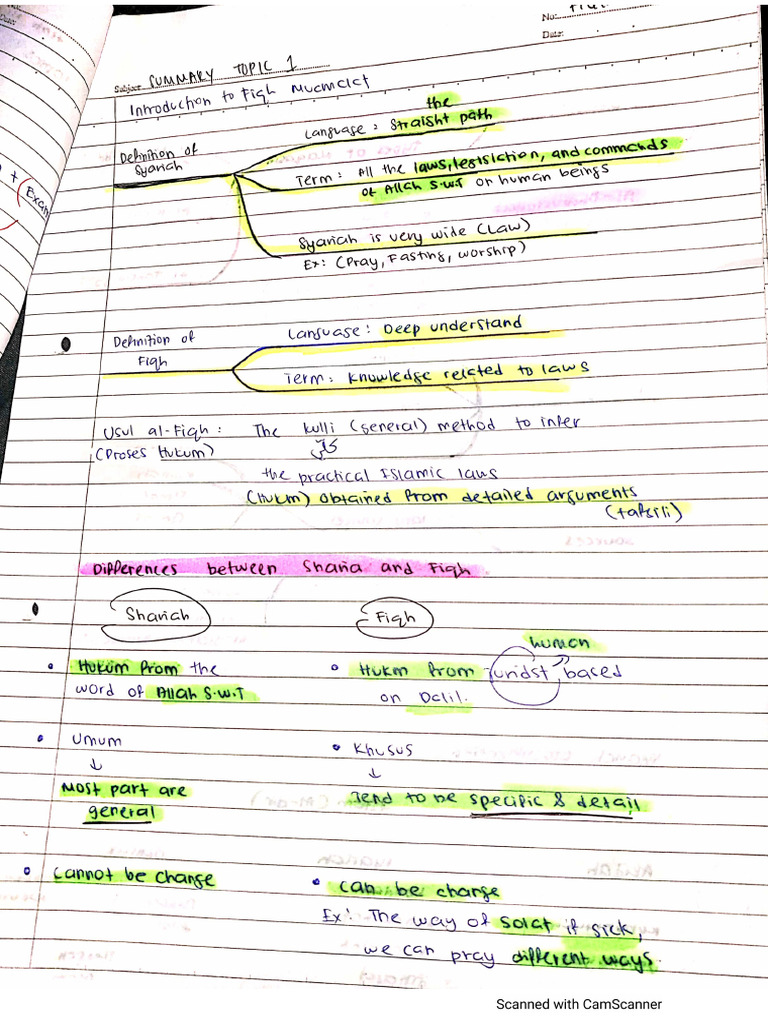 No:
Date:
Subject: SUMMARY TOPIC 1
Introduction to Fiqh Muamalat
Definition of
Syariah
Language : the
Straight path
Term : All the laws, restriction, and commands
of Allah S.W.T on human beings
Syariah is very wide (Law)
Ex: (Pray, Fasting, worship)
Definition of
Fiqh
Language : Deep understand
Term : Knowledge related to laws
Usul al-Fiqh : The kulli (general) method to infer
(Proses Hukum)
كلي
the practical Islamic laws
(Hukm) obtained from detailed arguments
(tafsili)
Differences between Sharia and Fiqh
Shariah
Hukum from the
word of Allah S.W.T
Umum
↓
Most part are
general
Cannot be change
Fiqh
human
Hukm from undst based
on Dalil.
Khusus
↓
Tend to be specific & detail
can be change
Ex: The way of solat if sick,
we can pray different ways.
+ (Exam
Scanned with CamScanner